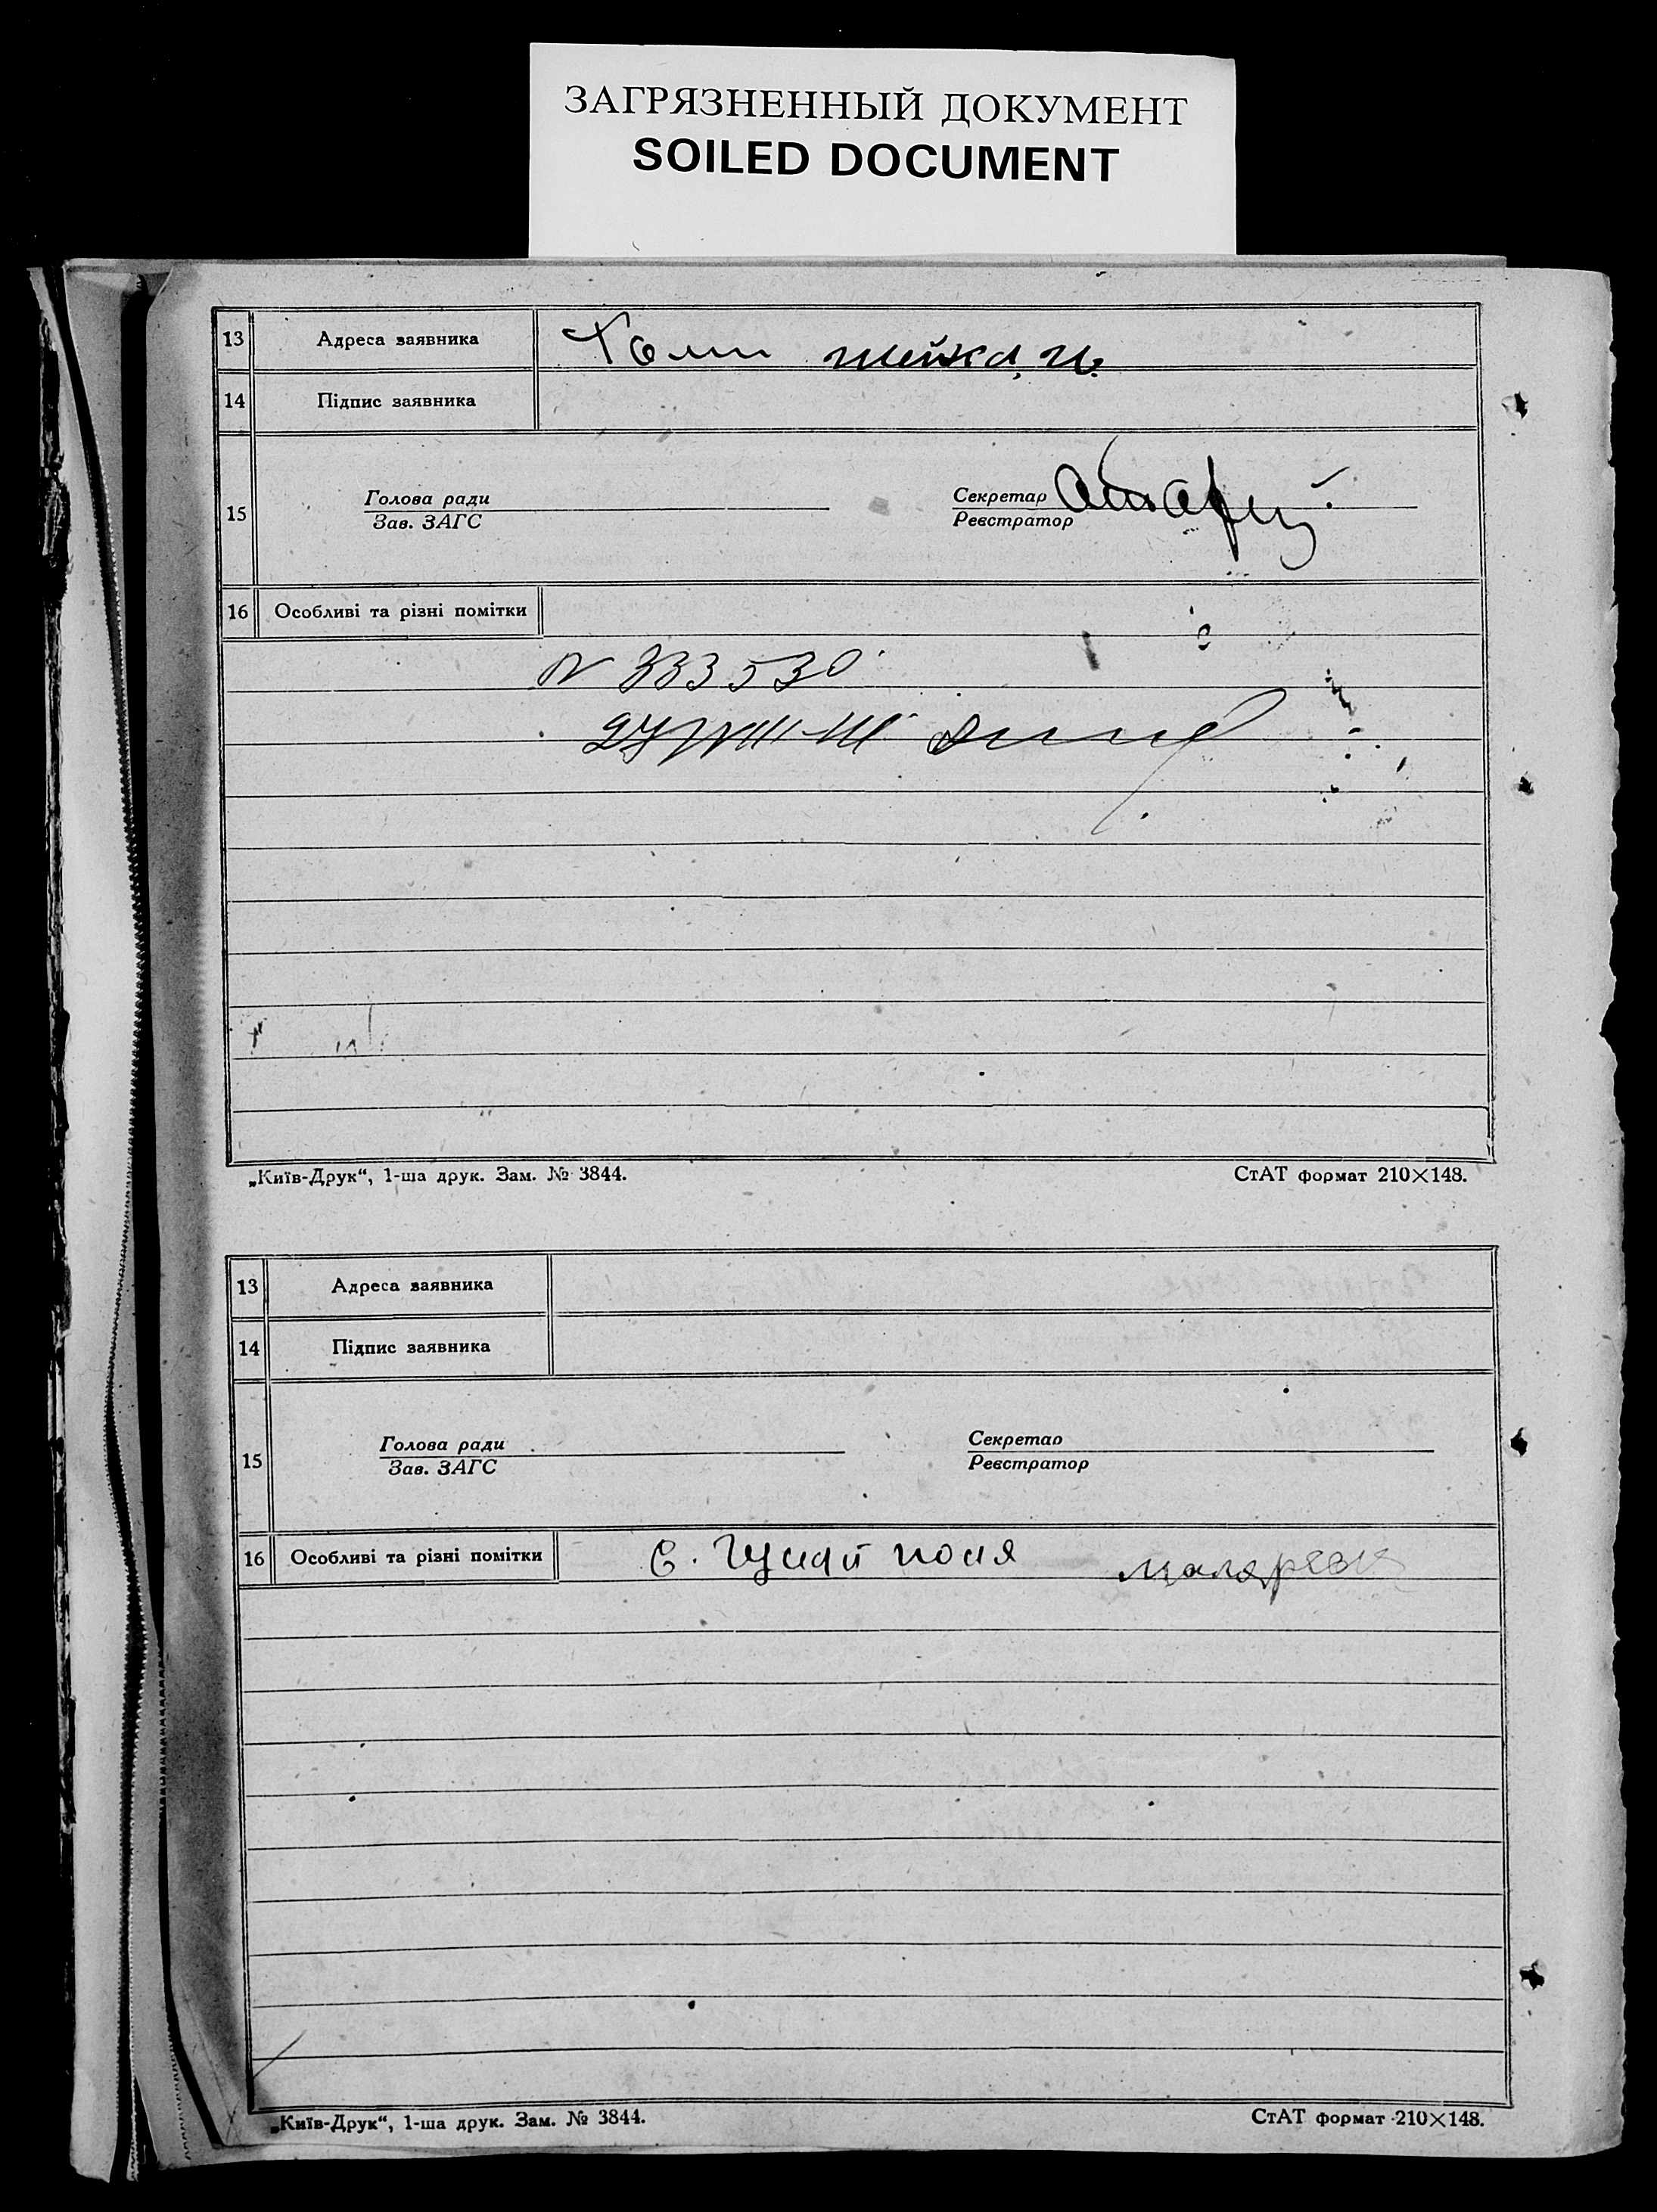 ЗАГРЯЗНЕННЫЙ ДОКУМЕНТ
SOILED DOCUMENT
13 Адреса заявника
14 Підпис заявника
15 Голова ради Секретар
Зав. ЗАГС Реєстратор
16 Особливі та різні помітки
N 333530
„Київ-Друк“, 1-ша друк. Зам. № 3844. СтАТ формат 210×148.
13 Адреса заявника
14 Підпис заявника
15 Голова ради Секретар
Зав. ЗАГС Реєстратор
16 Особливі та різні помітки с. Гуляй поля
„Київ-Друк“, 1-ша друк. Зам. № 3844. СтАТ формат 210×148.